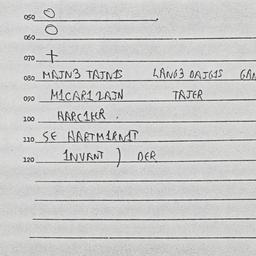 050 O
060 O
070 +
080 MAJN3 TAJNIS LANG3 DAJGIS GAN
090 MICARI2AJN TAJER
100 HARCIER .
110 SE HARTMIRNIT
120 INVANT ) DER